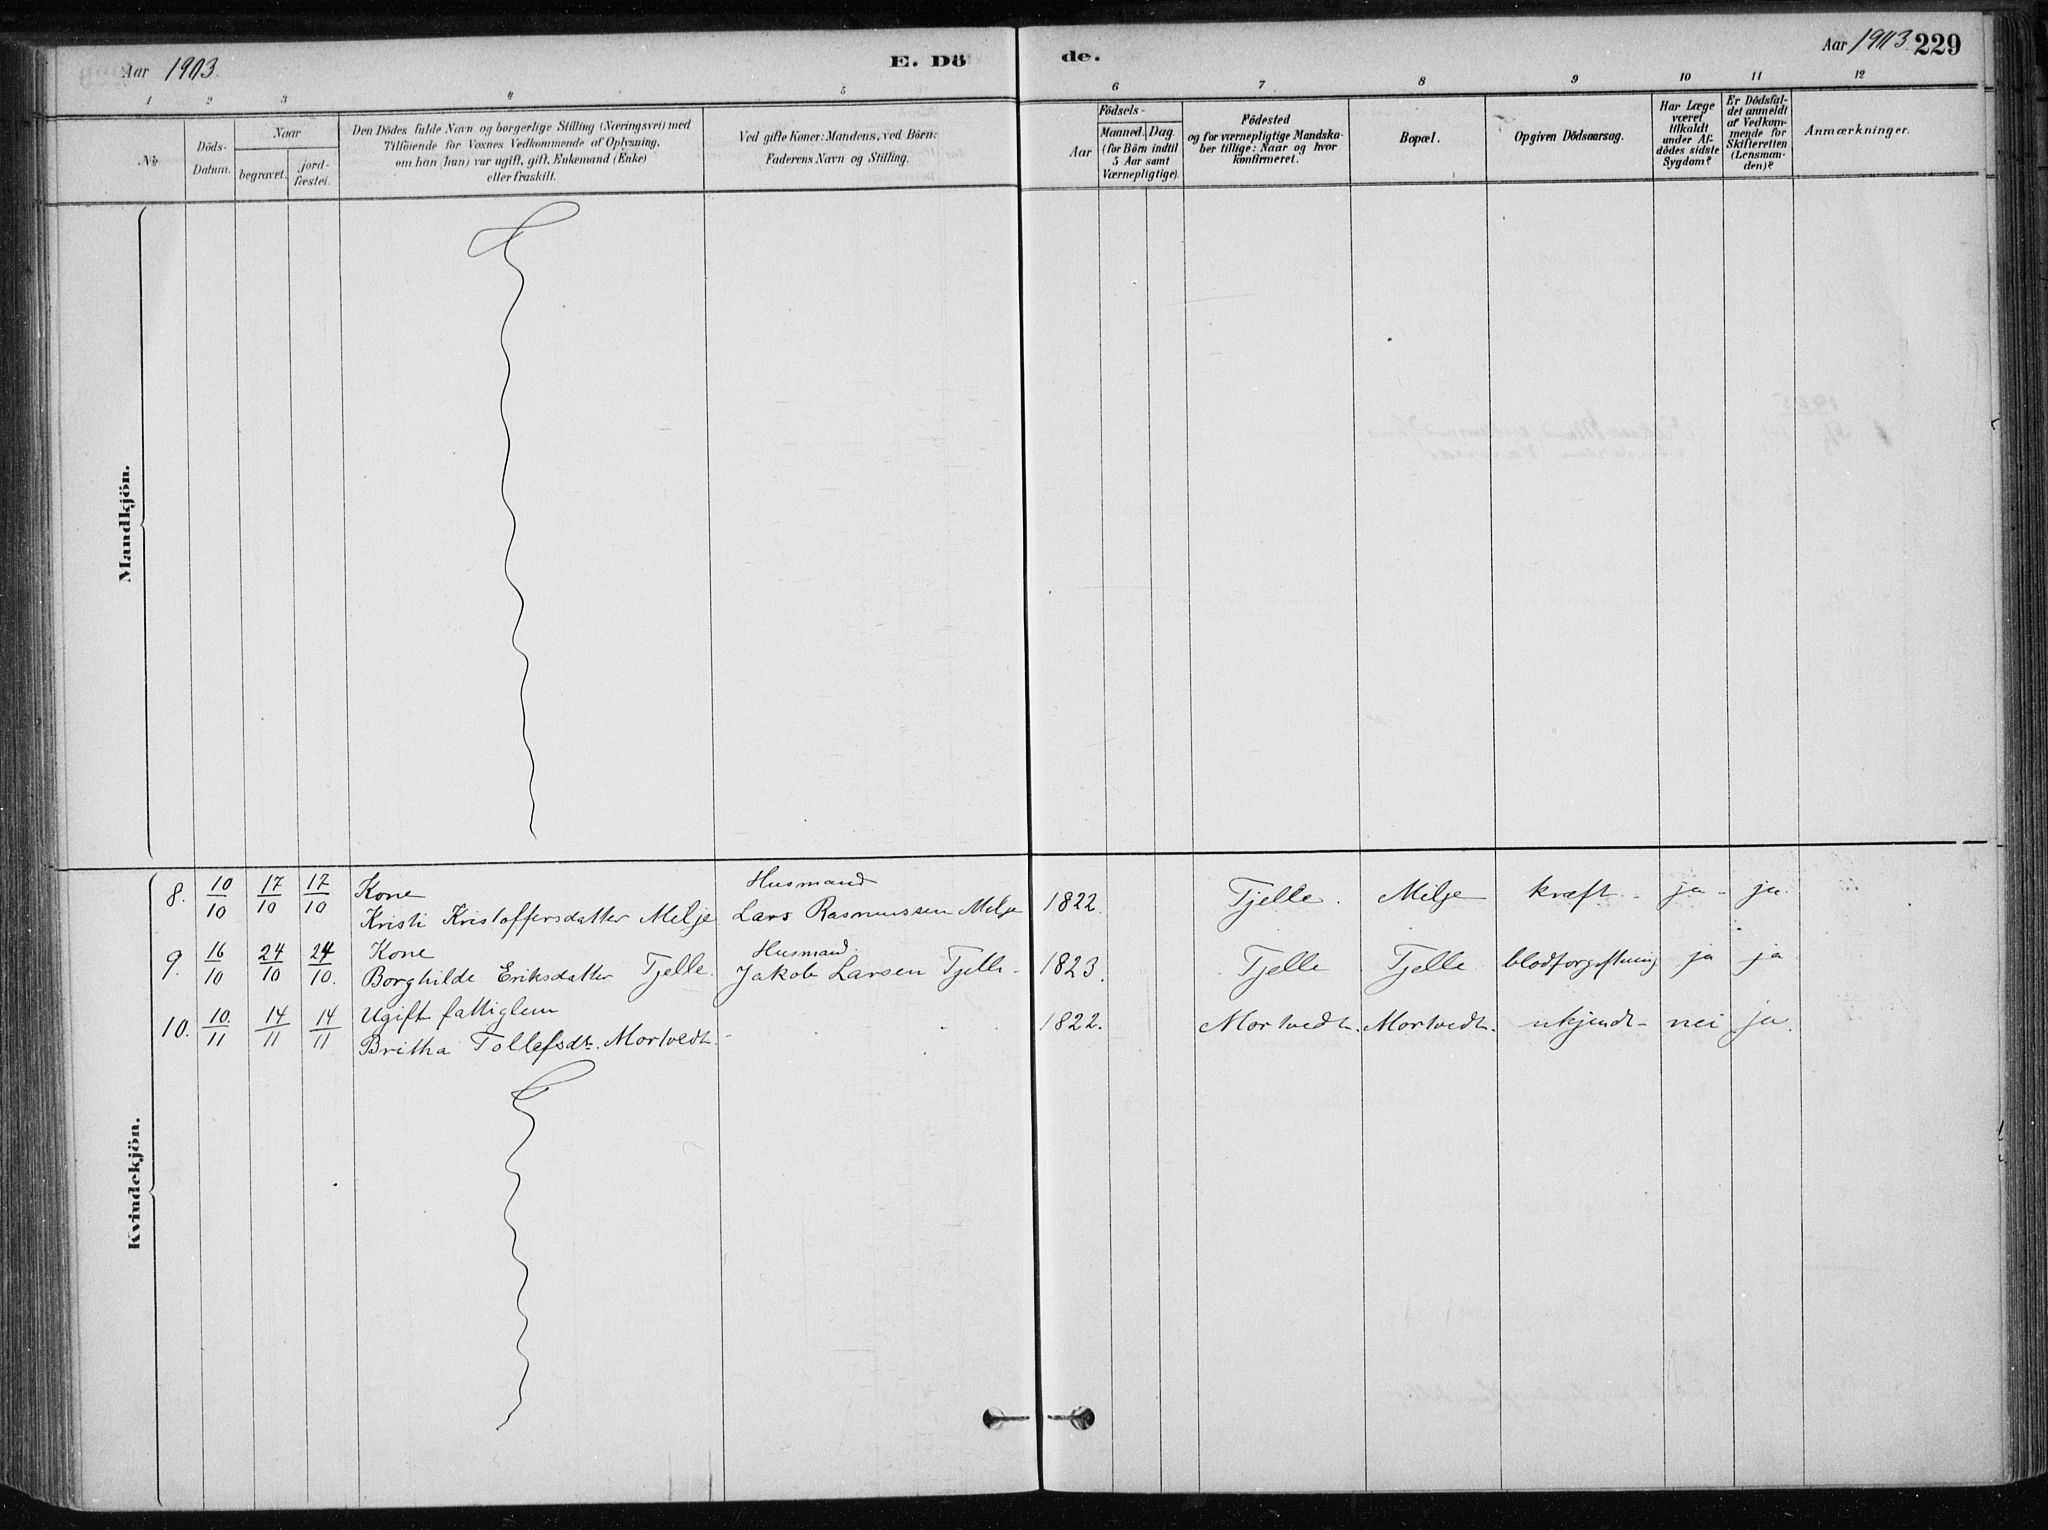 Aar 1903.
E. Dö
de.
Aar 1903. 229
1 2 3 4 5 6 7 8 9 10 11 12
No
Döds-
Datum.
Naar
begravet.
jord-
fæstet.
Den Dödes fulde Navn og borgerlige Stilling (Næringsvei) med
Tilföiende for Voxnes Vedkommende af Oplysning,
om han (hun) var ugift, gift, Enkemand (Enke)
eller fraskilt.
Ved gifte Koner: Mandens, ved Börn:
Faderens Navn og Stilling.
Födsels-
Aar
Maaned. Dag.
(for Börn indtil
5 Aar samt
Værnepligtige).
Födested
og for værnepligtige Mandska-
ber tillige: Naar og hvor
konfirmeret.
Bopæl.
Opgiven Dödsaarsag.
Har Læge
været
tilkaldt
under Af-
dödes sidste
Sygdom?
Er Dödsfal-
det anmeldt
af Vedkom-
mende for
Skifteretten
(Lensman-
den)?
Anmærkninger.
Mandkjön.
Kvindekjön.
8. 10/10 17/10 17/10 Kone Husmand
Kristi Kristoffersdatter Melje Lars Rasmussen Melje 1822. Tjelle. Melje kræft. ja. ja.
9. 16/10 24/10 24/10. Kone Husmand
Borghilde Eriksdatter Tjelle. Jakob Larsen Tjelle. 1823. Tjelle Tjelle blodforgiftning ja ja
10. 10./11 14/11 14/11 Ugift fattiglem
Britha Tollefsdt. Mortvedt. 1822. Mortvedt. Mortvedt. ukjendt. nei ja.